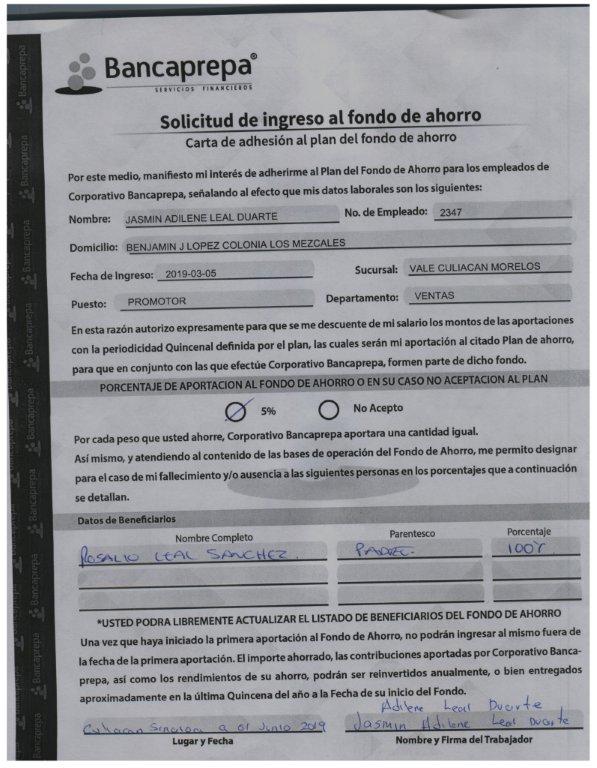 Bancaprepa®
SERVICIOS FINANCIEROS
Solicitud de ingreso al fondo de ahorro
Carta de adhesión al plan del fondo de ahorro
Por este medio, manifiesto mi interés de adherirme al Plan del Fondo de Ahorro para los empleados de
Corporativo Bancaprepa, señalando al efecto que mis datos laborales son los siguientes:
Nombre: JASMIN ADILENE LEAL DUARTE No. de Empleado: 2347
Domicilio: BENJAMIN J LOPEZ COLONIA LOS MEZCALES
Fecha de Ingreso: 2019-03-05 Sucursal: VALE CULIACAN MORELOS
Puesto: PROMOTOR Departamento: VENTAS
En esta razón autorizo expresamente para que se me descuente de mi salario los montos de las aportaciones
con la periodicidad Quincenal definida por el plan, las cuales serán mi aportación al citado Plan de ahorro,
para que en conjunto con las que efectúe Corporativo Bancaprepa, formen parte de dicho fondo.
PORCENTAJE DE APORTACION AL FONDO DE AHORRO O EN SU CASO NO ACEPTACION AL PLAN
5% No Acepto
Por cada peso que usted ahorre, Corporativo Bancaprepa aportara una cantidad igual.
Así mismo, y atendiendo al contenido de las bases de operación del Fondo de Ahorro, me permito designar
para el caso de mi fallecimiento y/o ausencia a las siguientes personas en los porcentajes que a continuación
se detallan.
Datos de Beneficiarios
Nombre Completo Parentesco Porcentaje
ROSALIO LEAL SANCHEZ. PADRE. 100%
*USTED PODRA LIBREMENTE ACTUALIZAR EL LISTADO DE BENEFICIARIOS DEL FONDO DE AHORRO
Una vez que haya iniciado la primera aportación al Fondo de Ahorro, no podrán ingresar al mismo fuera de
la fecha de la primera aportación. El importe ahorrado, las contribuciones aportadas por Corporativo Banca-
prepa, así como los rendimientos de su ahorro, podrán ser reinvertidos anualmente, o bien entregados
aproximadamente en la última Quincena del año a la Fecha de su inicio del Fondo.
Adilene Leal Duarte
Culiacan Sinaloa a 01 Junio 2019 Jasmin Adilene Leal Duarte
Lugar y Fecha Nombre y Firma del Trabajador
Bancaprepa
Bancaprepa
Bancaprepa
Bancaprepa
Bancaprepa
Bancaprepa
Bancaprepa
Bancaprepa
Bancaprepa